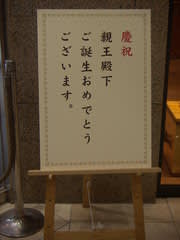 慶祝
親王殿下
ご誕生おめでとう
ございます。